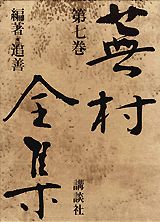 蕪村全集
第七巻
編著・追善
講談社